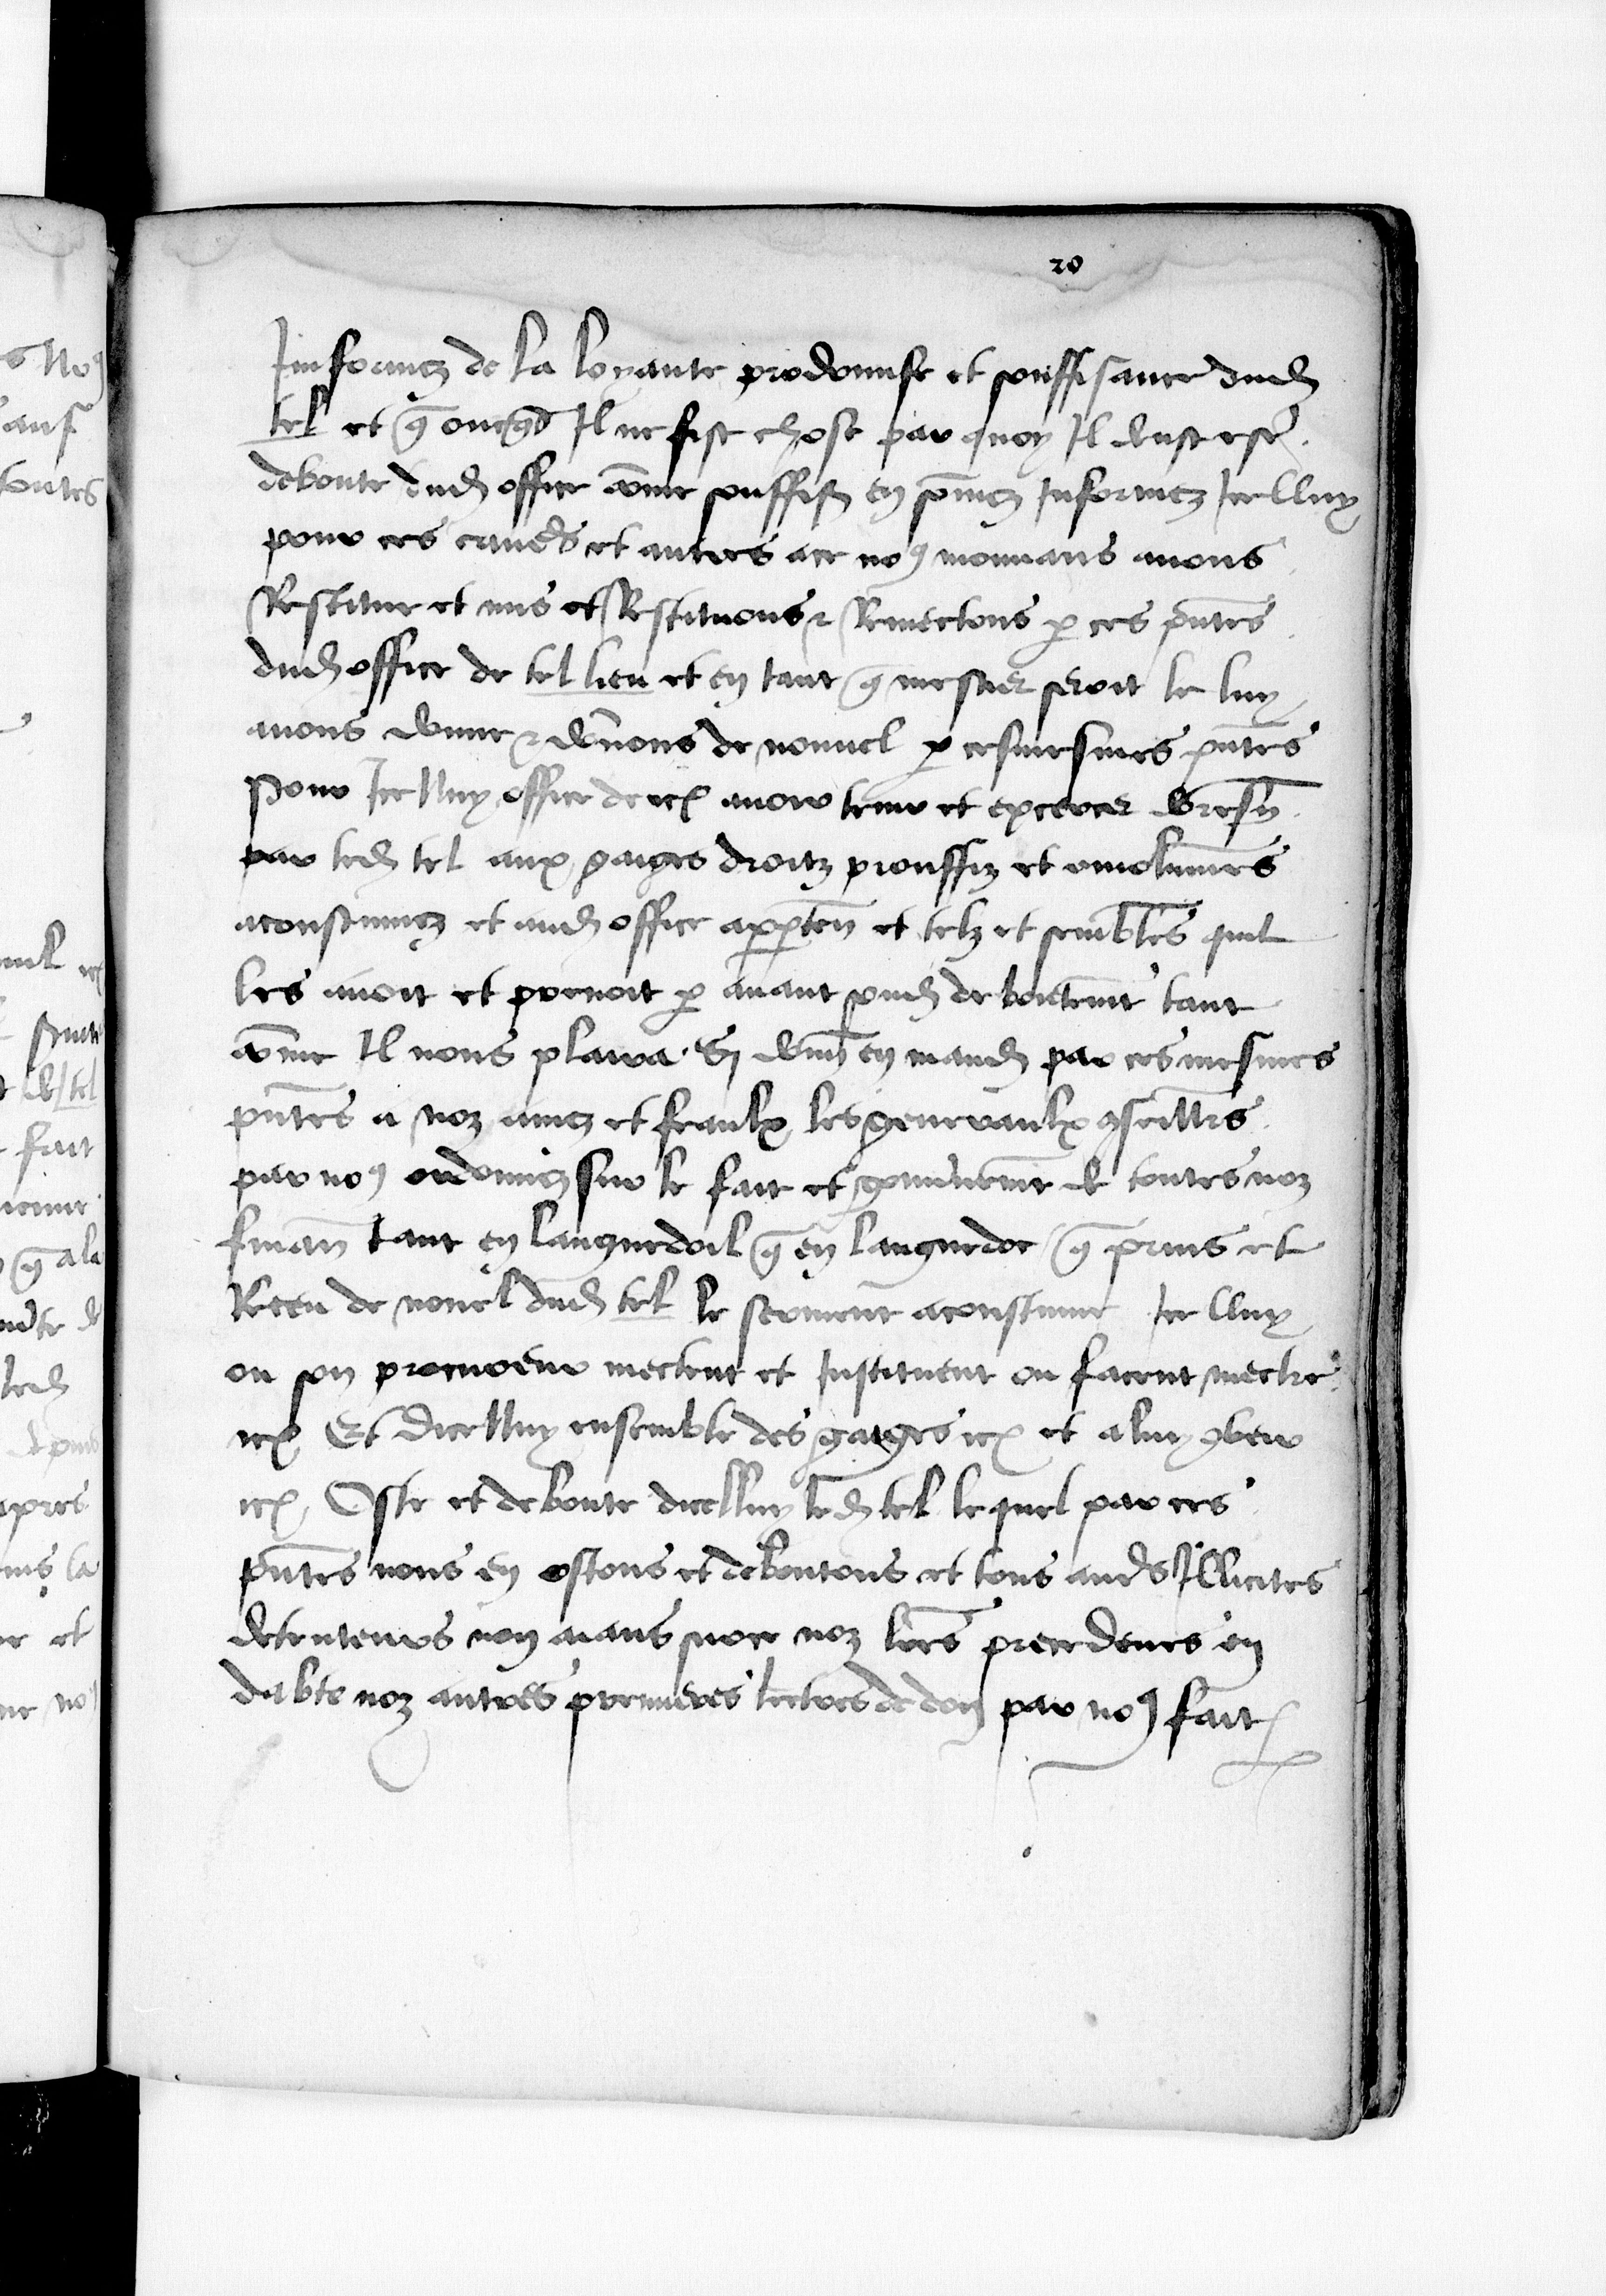 20
Informez de la loyaute prodommie et souffisance dud
tel et q̄ oncq̄s Il ne fist chose par quoy Il deust estre
deboute dud office cōme souffis en sōmes Informez Icelluy
pour ces causes et autres a ce no9 mouvans avons
Restitue et mis et Restituons & Remectons p ces pn̄tes
dud office de tel lieu et en tant q̄ mestier seroit le luy
avons donne & dōnons de nouvel p ces mesmes pn̄tes
Pour Icelluy office de icy avoir tenir et exercer doresn̄
par led tel aux gaiges droitz prouffiz et emolumēs
acoustumez et aud office appten̄ et telz et semblēs quil
les avoit et prenoit p avant sond deboutemēt tant
cōme Il nous plaira Si donn̄ en mand par ces mesmes
pn̄tes a noz amez et feaulx les generaulx 9seillrs
par no9 ordonnez sur le fait et gouvernemēt de toutes noz
finan̄ tant en languedoil q̄ en languedoc q̄ prins et
Receu de nouvel dud tel le serment acoustume Icelluy
ou son procureur mectent et Instituent ou facent mectre
icy Et dicelluy ensemble des gaiges icy et a luy obeir
icy Oste et deboute dicelluy led tel lequel par ces
pn̄tes nous en ostons et deboutons et tous auts Illicites
detenteurs non aians sur ce noz lrēs precedens en
dabte noz autres premieres lectres de don par no9 fait